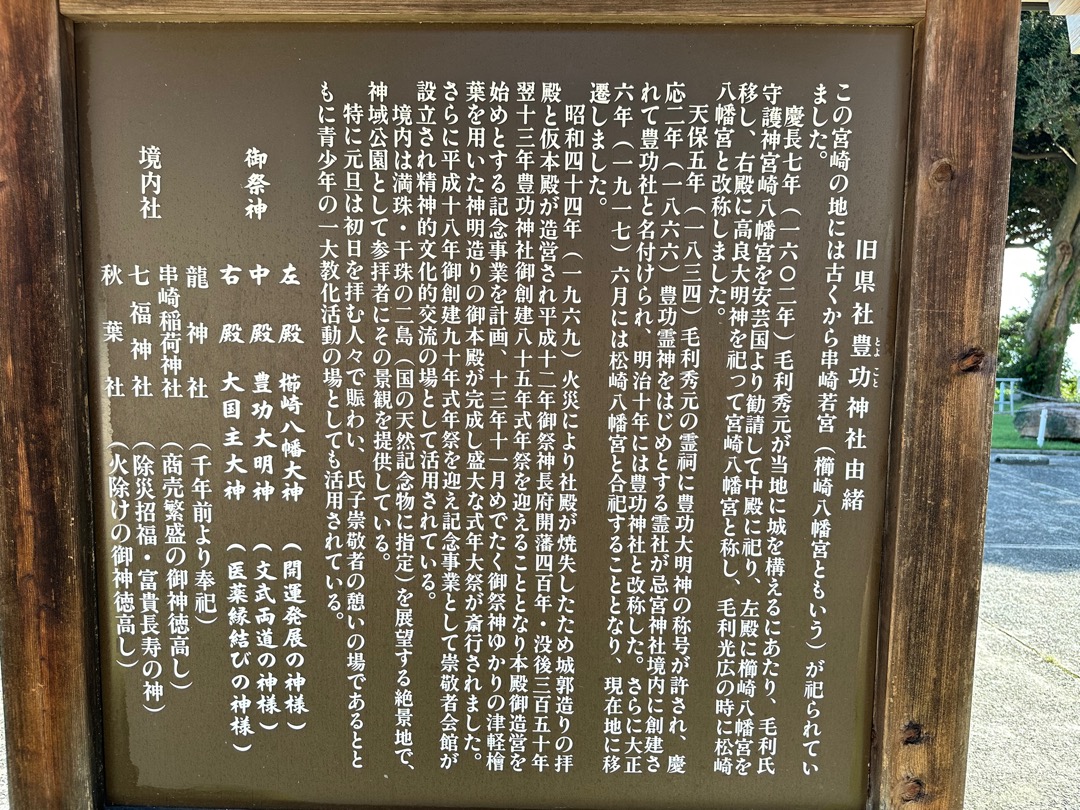 旧県社豊功神社由緒
とよ こと
この宮崎の地には古くから串崎若宮（櫛崎八幡宮ともいう）が祀られてい
ました。
慶長七年（一六〇二年）毛利秀元が当地に城を構えるにあたり、毛利氏
守護神宮崎八幡宮を安芸国より勧請して中殿に祀り、左殿に櫛崎八幡宮を
移し、右殿に高良大明神を祀って宮崎八幡宮と称し、毛利光広の時に松崎
八幡宮と改称しました。
天保五年（一八三四）毛利秀元の霊祠に豊功大明神の称号が許され、慶
応二年（一八六六）豊功霊神をはじめとする霊社が忌宮神社境内に創建さ
れて豊功社と名付けられ、明治十年には豊功神社と改称した。さらに大正
六年（一九一七）六月には松崎八幡宮と合祀することとなり、現在地に移
遷しました。
昭和四十四年（一九六九）火災により社殿が焼失したため城郭造りの拝
殿と仮本殿が造営され平成十二年御祭神長府開藩四百年・没後三百五十年
翌十三年豊功神社御創建八十五年式年祭を迎えることとなり本殿御造営を
始めとする記念事業を計画、十三年十一月めでたく御祭神ゆかりの津軽檜
葉を用いた神明造りの御本殿が完成し盛大な式年大祭が斎行されました。
さらに平成十八年御創建九十年式年祭を迎え記念事業として崇敬者会館が
設立され精神的文化的交流の場として活用されている。
境内は満珠・干珠の二島（国の天然記念物に指定）を展望する絶景地で、
神域公園として参拝者にその景観を提供している。
特に元旦は初日を拝む人々で賑わい、氏子崇敬者の憩いの場であるとと
もに青少年の一大教化活動の場としても活用されている。
左殿 櫛崎八幡大神（開運発展の神様）
御祭神 中殿 豊功大明神（文武両道の神様）
右殿 大国主大神（医薬縁結びの神様）
龍神社（千年前より奉祀）
境内社 串崎稲荷神社（商売繁盛の御神徳高し）
七福神社（除災招福・富貴長寿の神）
秋葉社（火除けの御神徳高し）